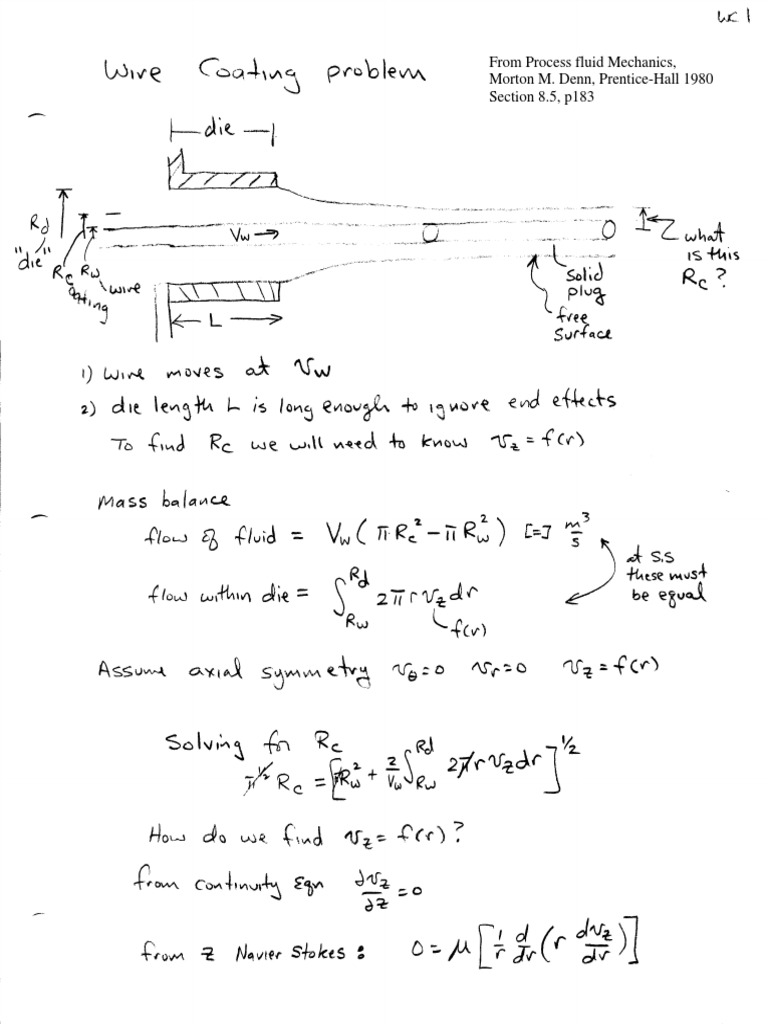 WC 1
Wire Coating problem
From Process fluid Mechanics,
Morton M. Denn, Prentice-Hall 1980
Section 8.5, p183
die
Rd
"die"
Rc
coating
Rw
wire
Vw →
L
solid
plug
free
surface
what
is this
Rc?
1) wire moves at Vw
2) die length L is long enough to ignore end effects
To find Rc we will need to know vz = f(r)
Mass balance
flow of fluid = Vw (πRc² − πRw²) [=] m³/s
flow within die = ∫_Rw^Rd 2πr vz dr
f(r)
at S.S
these must
be equal
Assume axial symmetry vθ=0 vr=0 vz=f(r)
Solving for Rc
π^1/2 Rc = [πRw² + 2/Vw ∫_Rw^Rd 2πr vz dr]^1/2
How do we find vz = f(r)?
from continuity Eqn ∂vz/∂z = 0
from z Navier Stokes: 0 = μ [1/r d/dr (r dvz/dr)]